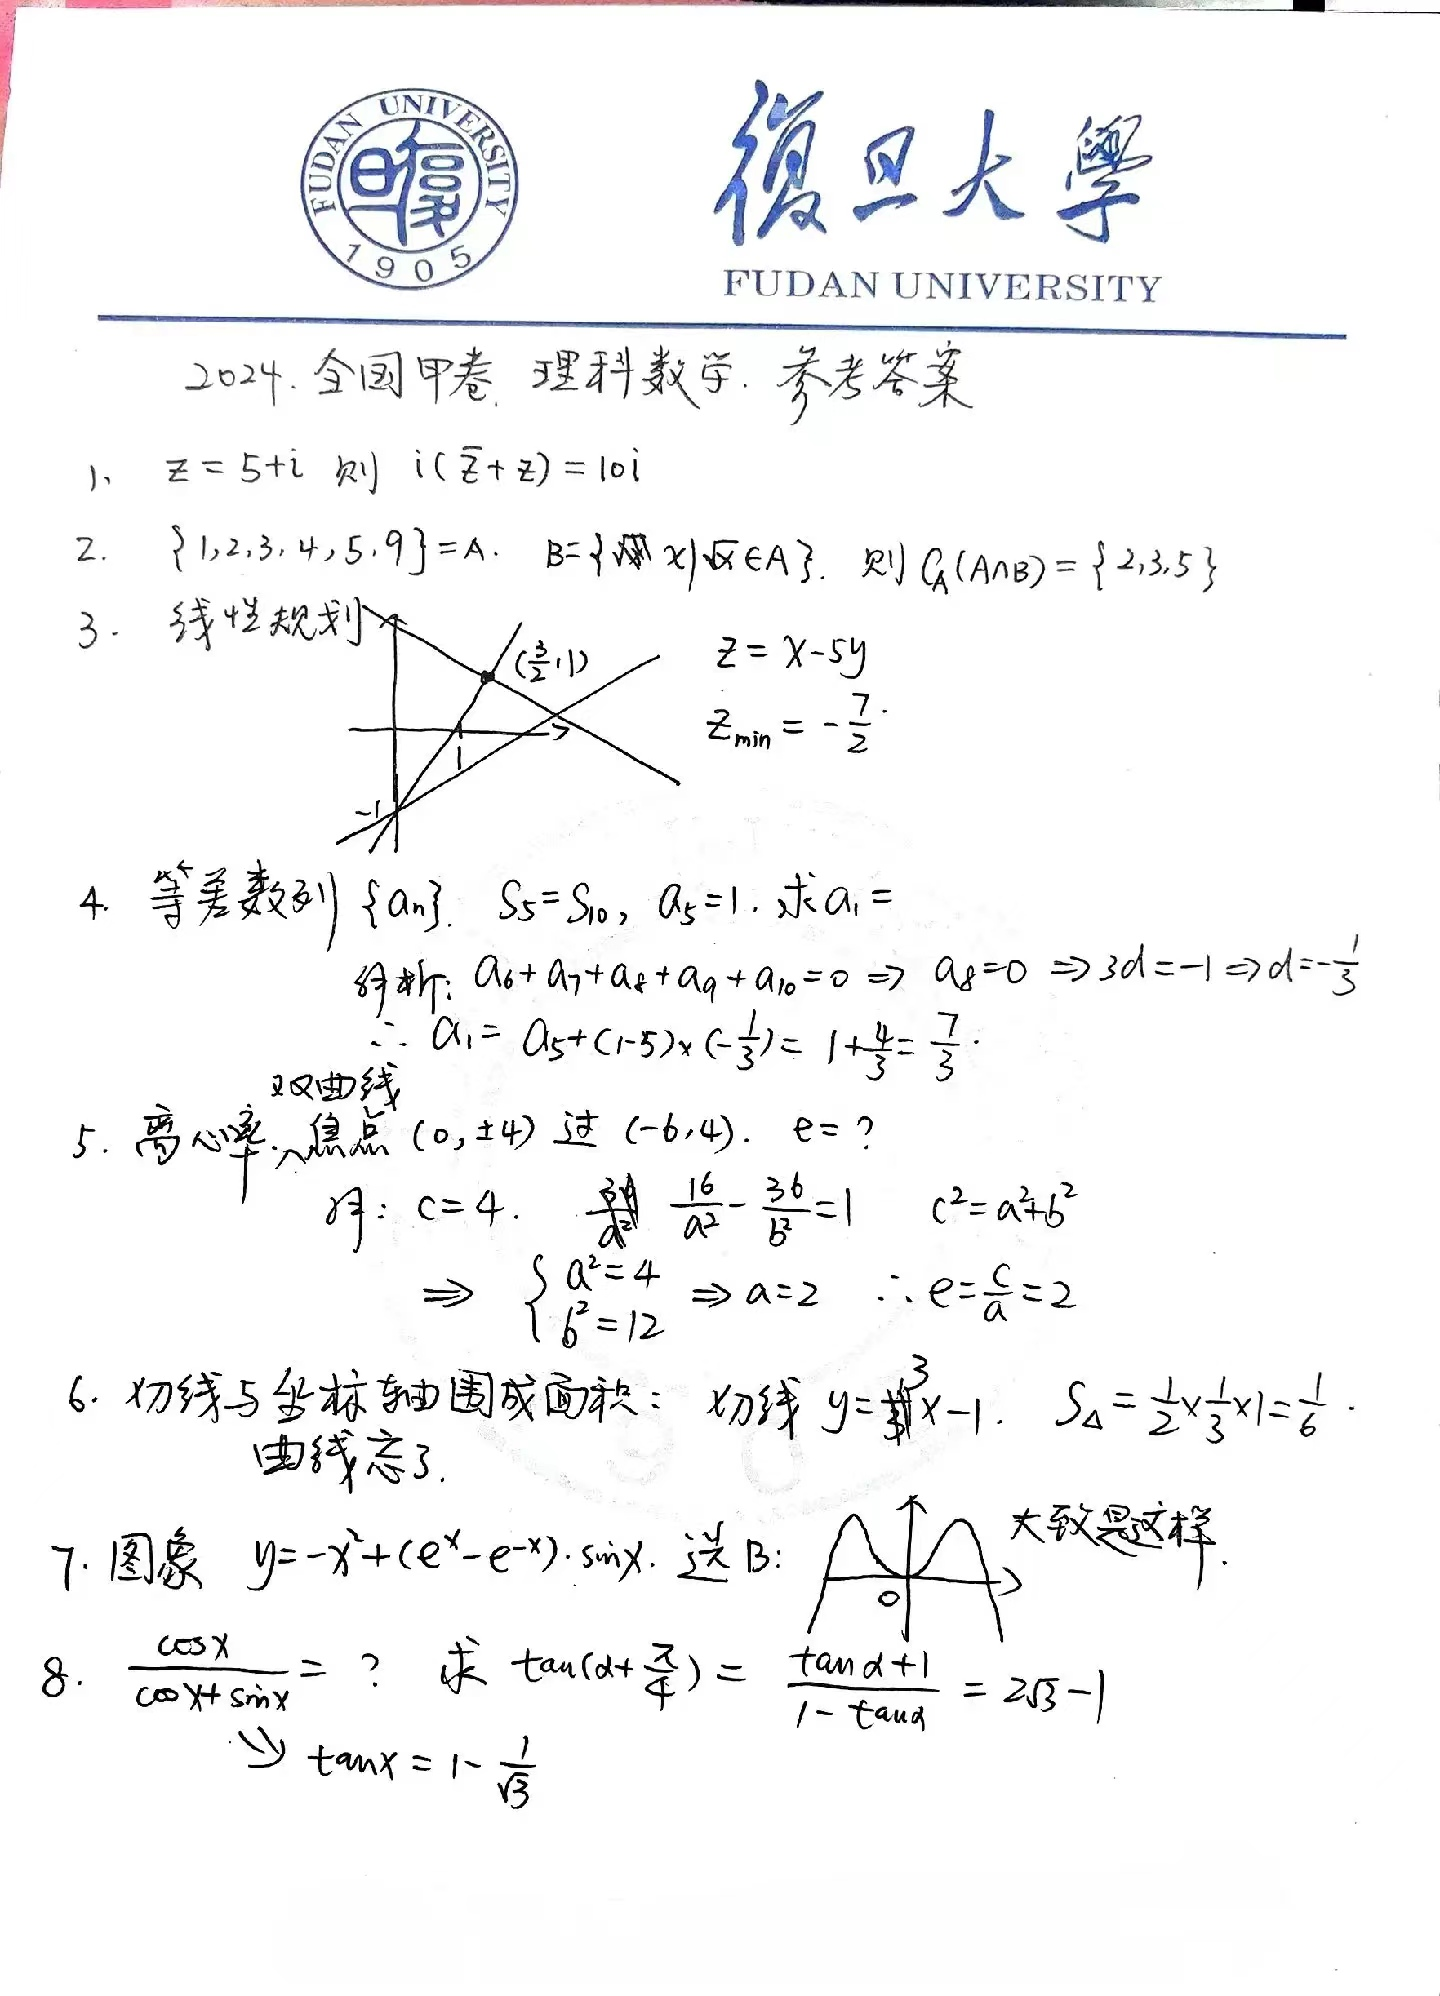 FUDAN UNIVERSITY
1905
復旦大學
FUDAN UNIVERSITY
2024.全国甲卷 理科数学.参考答案
1、 z=5+i 则 i(z̄+z)=10i
2. {1,2,3,4,5,9}=A. B={x|√x∈A}. 则∁_A(A∩B)={2,3,5}
3. 线性规划 (3/2,1) z=x-5y
z_min=-7/2.
1
-1
4. 等差数列{aₙ}. S₅=S₁₀, a₅=1.求a₁=
解析: a₆+a₇+a₈+a₉+a₁₀=0⇒ a₈=0 ⇒3d=-1⇒d=-1/3
∴ a₁= a₅+(1-5)×(-1/3)= 1+4/3=7/3.
双曲线
5. 离心率.∧焦点(0,±4)过(-6,4). e=?
解: c=4. 16/a²-36/b²=1 c²=a²+b²
⇒ {a²=4 b²=12 ⇒a=2 ∴e=c/a=2
6. 切线与坐标轴围成面积: 切线 y=3x-1. S△=1/2×1/3×1=1/6.
曲线忘了.
7. 图象 y=-x²+(eˣ-e⁻ˣ)·sinx. 选B: 0 大致是这样.
8. cosx/(cosx+sinx)=? 求 tan(α+π/4)=(tanα+1)/(1-tanα)=2√3-1
⇒ tanx=1-1/√3